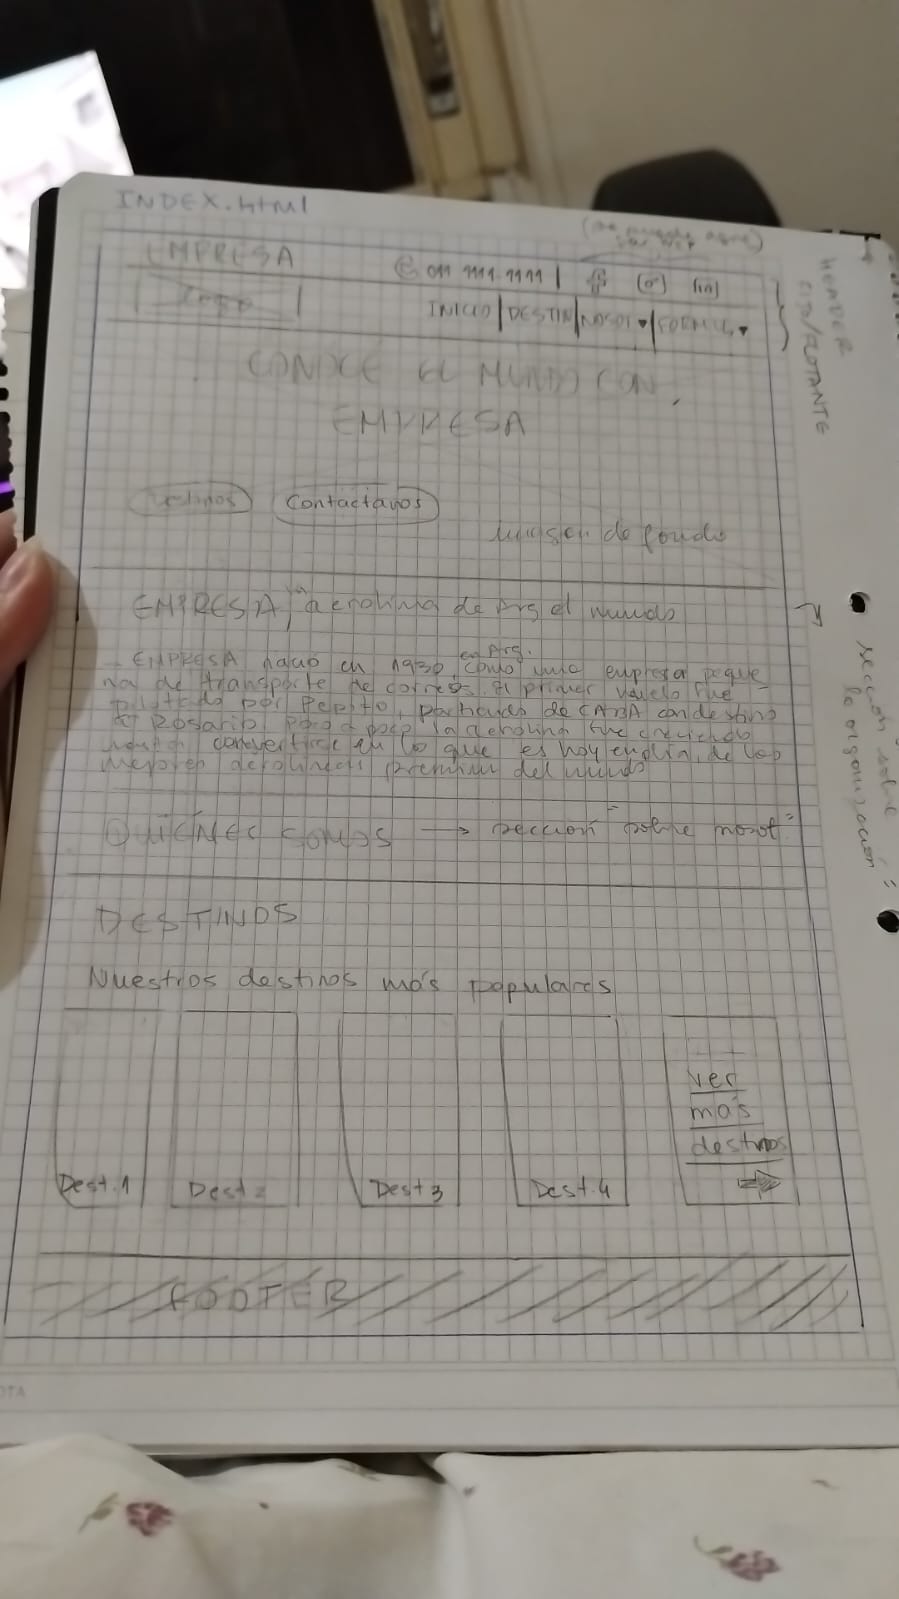 INDEX.html
EMPRESA
011 1111.1111 |
INICIO | DESTIN | NOSOT ▾ | FORMUL ▾
HEADER
FLOTANTE
CONOCE EL MUNDO CON
EMPRESA
Destinos
Contactanos
imagen de fondo
EMPRESA, aerolinea de Arg al mundo
en Arg.
EMPRESA nació en 1930, como una empresa peque
ña de transporte de correos. El primer vuelo fue
piloteado por Pepito, partiendo de CABA con destino
a Rosario. Poco a poco la aerolinea fue creciendo
hasta convertirse en lo que es hoy en día, de las
mejores aerolineas premium del mundo
sección sobre
la organización
QUIÉNES SOMOS → sección "sobre nosot."
DESTINOS
Nuestros destinos más populares
ver
más
destinos
Dest.1
Dest 2
Dest 3
Dest.4
FOOTER
OTA